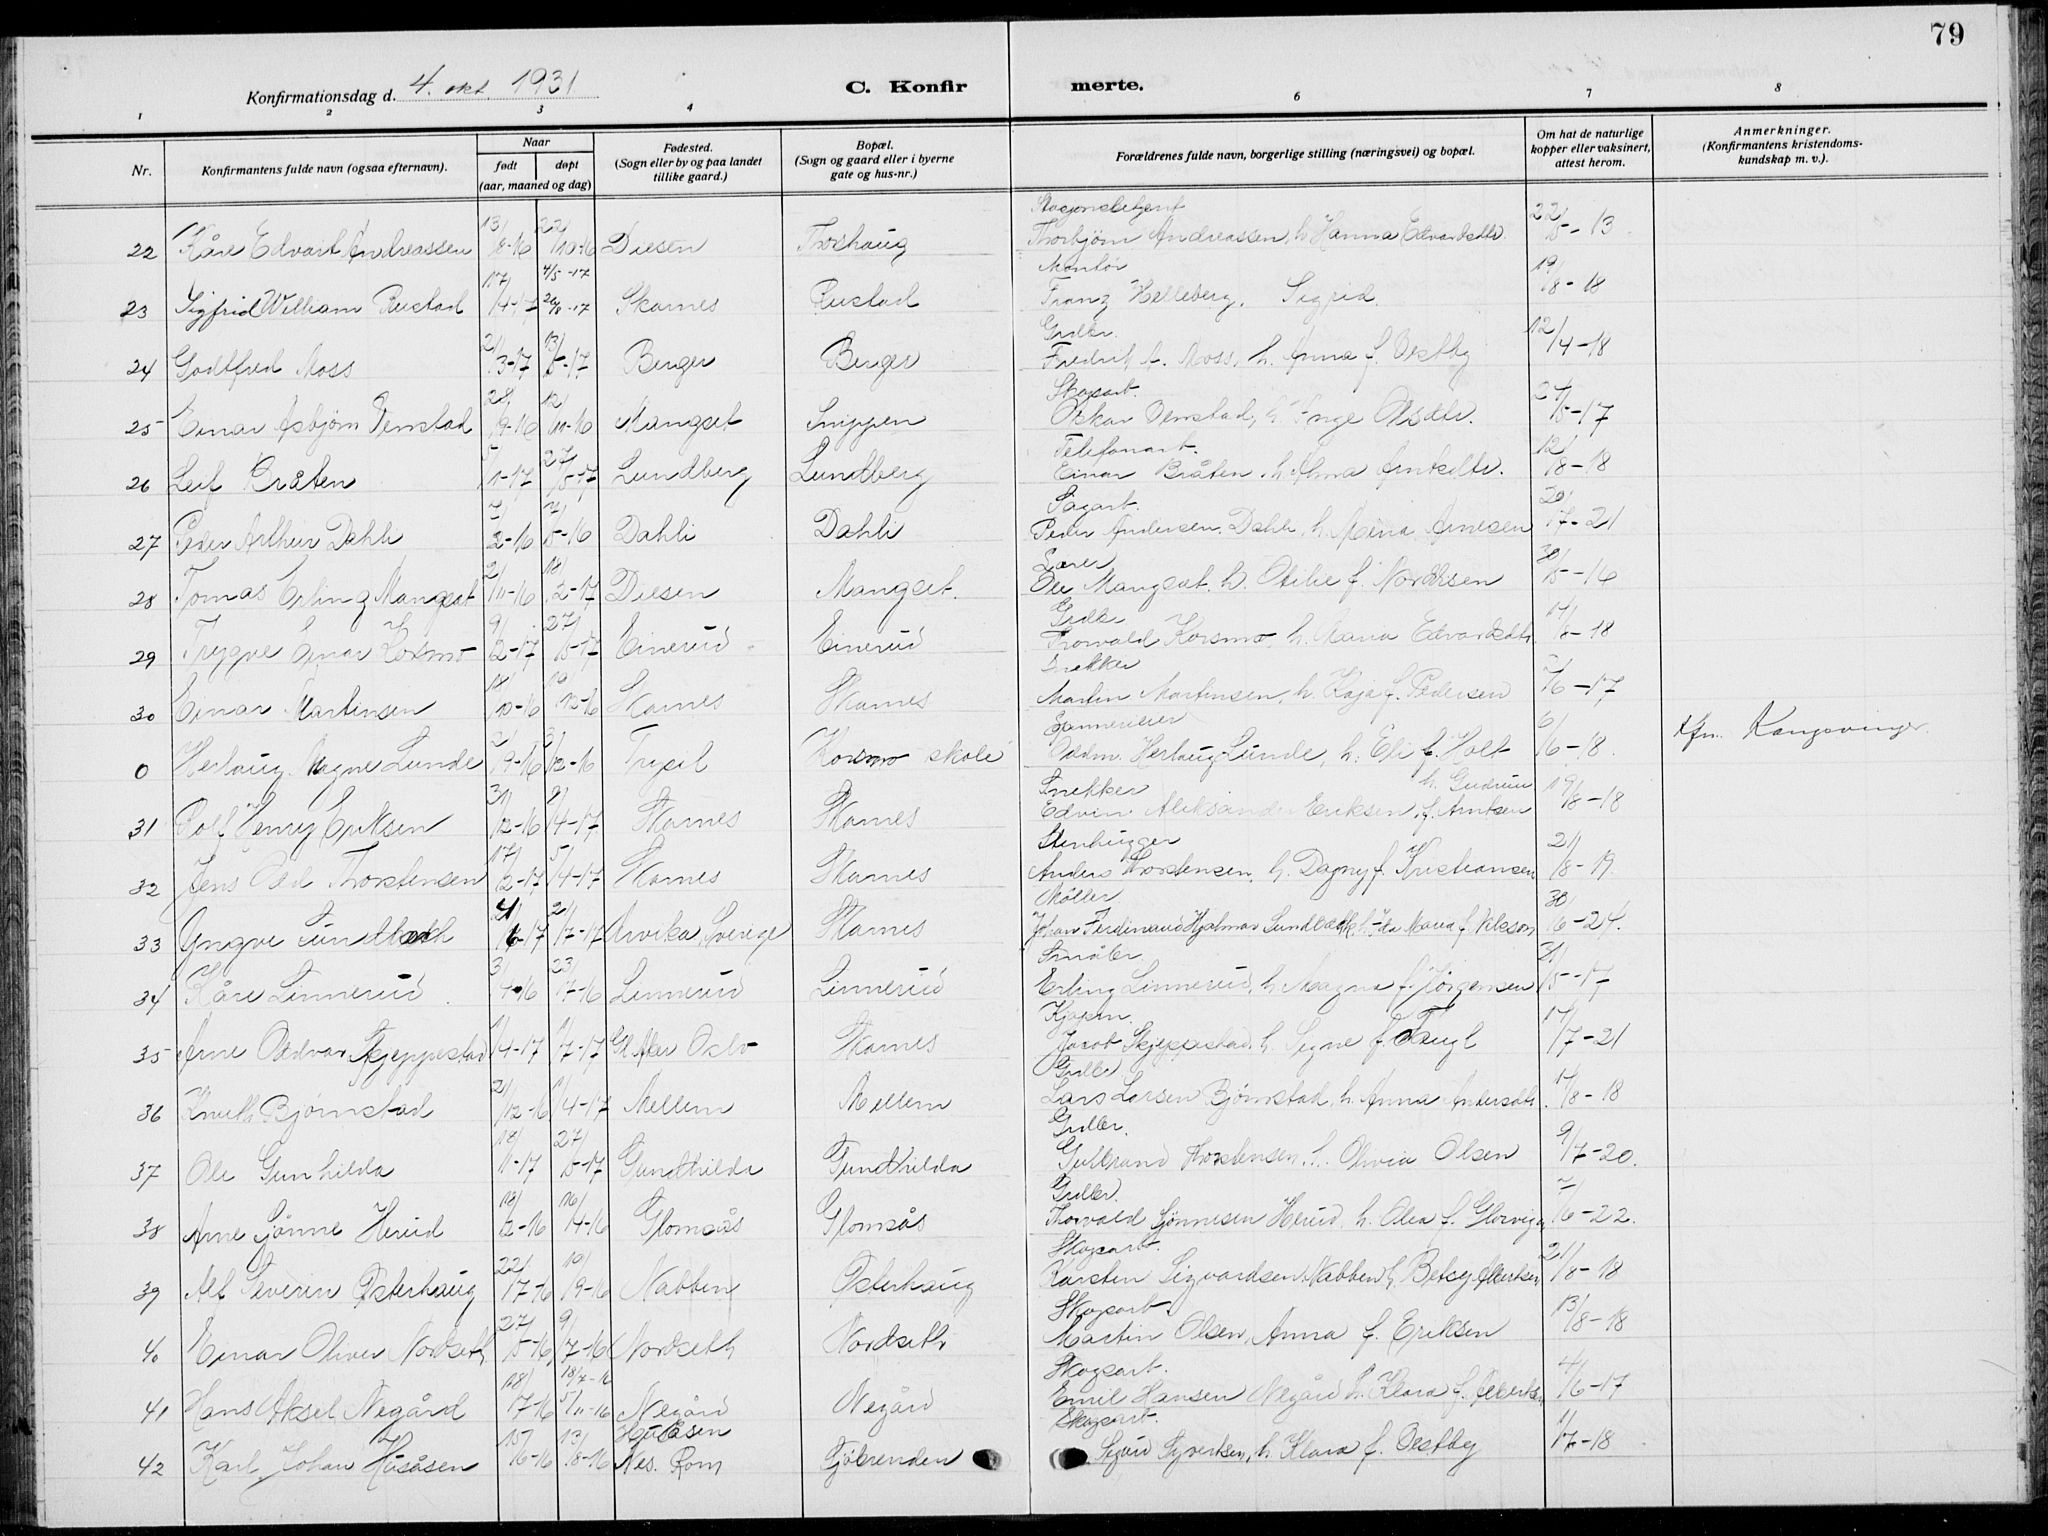 79
Konfirmationsdag d. 4. okt. 1931
C. Konfir merte.
1 2 3 4 6 7 8
Nr.
Konfirmantens fulde navn (ogsaa efternavn).
Naar
født døpt
(aar, maaned og dag)
Fødested.
(Sogn eller by og paa landet
tillike gaard.)
Bopæl.
(Sogn og gaard eller i byerne
gate og hus-nr.)
Forældrenes fulde navn, borgerlige stilling (næringsvei) og bopæl.
Om hat de naturlige
kopper eller vaksinert,
attest herom.
Anmerkninger.
(Konfirmantens kristendoms-
kundskap m. v.).
22 Kåre Edvart Andreassen 13/8-16 22/10-16 Disen Thorshaug Thorbjørn Andreassen, h. Hanna Edvardsdtr. 22/5-13
Montør
23 Sigfrid William Rustad 17/4-17 4/5-17 26/8-17 Skarnes Rustad Franz Helleberg. Sigrid 19/8-18
Grdbr.
24 Godtfred Moss 21/3-17 13/5-17 Berger Berger Fredrik A. Moss, h. Anna f. Østby 12/4-18
Skogsarb.
25 Einar Asbjørn Venstad 28/9-16 12/11-16 Mangset Snippen Oskar Venstad, h. Inge Olsdtr. 27/5-17
Telefonarb.
26 Leif Bråten 5/1-17 27/5-17 Lundberg Lundberg Einar Bråten. h. Alma Arntsdtr. 12/8-18
Sagarb.
27 Peder Arthur Dahli 7/2-16 7/5-16 Dahli Dahli Peder Andersen Dahli, h. Mina Arnesen 20/7-21
Lærer
28 Tomas Erling Mangset 2/11-16 18/2-17 Disen Mangset. Ole Mangset. h. Otilie f. Nordksen 30/5-16
Grdbr.
29 Trygve Einar Korsmo 9/2-17 27/5-17 Einerud Einerud Thorvald Korsmo, h. Maria Edvardsdtr. 17/8-18
Snekker
30 Einar Martinsen 18/10-16 10/12-16 Skarnes Skarnes Martin Martinsen, h. Kaja f. Pedersen 2/6-17
0 Herlaug Magne Lunde 2/9-16 3/12-16 Trysil Korsmo skole Oddm. Herlaug Lunde, h. Eli f. Holt 6/6-18. Kfm. Kongsvinger.
Snekker h. Gudrun
31 Rolf Henry Eriksen 31/12-16 9/4-17 Skarnes Skarnes Edvin Aleksander Eriksen, f. Arntsen 19/8-18
Stenhugger
32 Jens Odd Thorstensen 17/2-17 5/4-17 Skarnes Skarnes Anders Thorstensen, h. Dagny f. Kristiansen 21/8-19
Møller
33 Yngve Lundbäck 4/6-17 2/7-17 Arvika, Sverige Skarnes Johan Ferdinand Hjalmar Lundbäck. h. Ida Maria f. Nilsson 30/6-24.
Småbr.
34 Kåre Linnerud 3/4-16 23/7-16 Linnerud Linnerud Erling Linnerud, h. Magna f. Jörgensen 31/5-17
Kjøpm.
35 Arne Oddvar Skjeppestad 1/4-17 1/7-17 Gl. Aker Oslo Skarnes Jacob Skjeppestad, h. Signe f. Faugl 17/7-21
Grdbr.
36 Knuth Bjørnstad 21/12-16 1/4-17 Mellem Mellem Lars Larsen Bjørnstad, h. Anna Andersdtr. 17/8-18
Grdbr.
37 Ole Gunhilda 18/1-17 27/5-17 Gundhilda Gundhilda Gulbrand Thorstensen, h. Olivia Olsen 9/7-20.
Grdbr.
38 Arne Sjønne Herud 18/2-16 16/4-16 Glomsås Glomsås Thorvald Sjønnesen Herud, h. Olea f. Glorvigen 7/6-22.
Skogsarb.
39 Alf Severin Østerhaug 22/7-16 10/9-16 Nabben Østerhaug Karsten Sigvardsen Nabben h. Betsy Albertsen 21/8-18
Skogsarb.
40 Einar Oliver Nordseth 27/5-16 9/7-16 Nordseth Nordseth Martin Olsen, Anna f. Eriksen 13/8-18
Skogsarb.
41 Hans Aksel Negård 18/7-16 18/7-16 5/11-16 Negård Negård Emil Hansen Negård h. Klara f. Albertsen 4/6-17
Skogsarb.
42 Karl Johan Husåsen 15/6-16 13/8-16 Husåsen Nes. Rom. Sjöbrenden Sigurd Syvertsen, h. Klara f. Østby 1/7-18